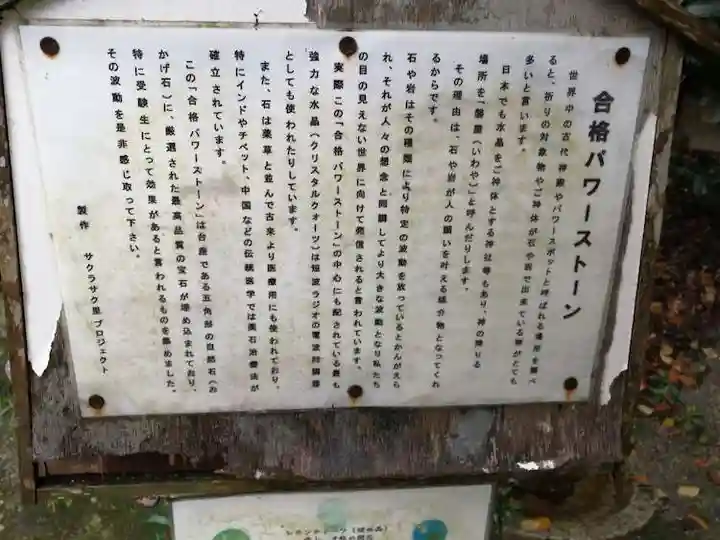 合格パワーストーン
世界中の古代神殿やパワースポットと呼ばれる場所を調べ
ると、祈りの対象物やご神体が石や岩で出来ている事がとても
多いと言います。
日本でも水晶をご神体とする神社等もあり、神の降りる
場所を「磐座(いわや)」と呼んだりします。
その理由は、石や岩が人の願いを叶える媒介物となってくれ
るからです。
石や岩はその種類により特定の波動を放っているとかんがえら
れ、それが人々の想念と同調してより大きな波動となり私たち
の目の見えない世界に向けて発信されると言われています。
実際この「合格パワーストーン」の中心にも配されている最も
強力な水晶(クリスタルクォーツ)は短波ラジオの電波同調器
としても使われたりしています。
また、石は薬草と並んで古来より医療用にも使われており、
特にインドやチベット、中国などの伝統医学では薬石治療法が
確立されています。
この「合格パワーストーン」は台座である五角形の自然石(お
かげ石)に、厳選された最高品質の宝石が埋め込まれており、
特に受験生にとって効果があると言われるものを集めました。
その波動を是非感じ取って下さい。
製作 サクラサク里プロジェクト